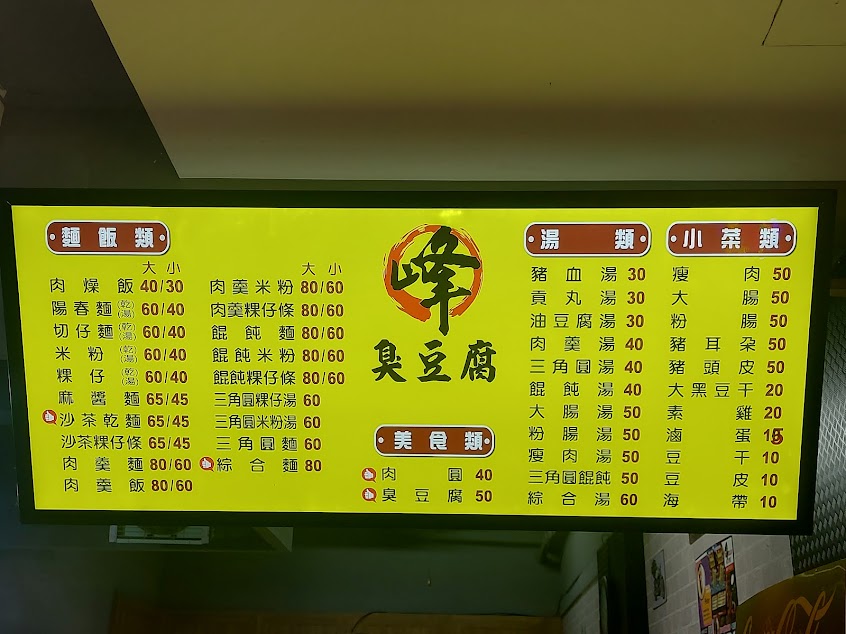 麵飯類
大 小
肉燥飯 40/30
陽春麵(乾/湯) 60/40
切仔麵(乾/湯) 60/40
米粉(乾/湯) 60/40
粿仔(乾/湯) 60/40
麻醬麵 65/45
沙茶乾麵 65/45
沙茶粿仔條 65/45
肉羹麵 80/60
肉羹飯 80/60
大 小
肉羹米粉 80/60
肉羹粿仔條 80/60
餛飩麵 80/60
餛飩米粉 80/60
餛飩粿仔條 80/60
三角圓粿仔湯 60
三角圓米粉湯 60
三角圓麵 60
綜合麵 80
峰
臭豆腐
美食類
肉圓 40
臭豆腐 50
湯類
豬血湯 30
貢丸湯 30
油豆腐湯 30
肉羹湯 40
三角圓湯 40
餛飩湯 40
大腸湯 50
粉腸湯 50
瘦肉湯 50
三角圓餛飩 50
綜合湯 60
小菜類
瘦肉 50
大腸 50
粉腸 50
豬耳朵 50
豬頭皮 50
大黑豆干 20
素雞 20
滷蛋 15
豆干 10
豆皮 10
海帶 10